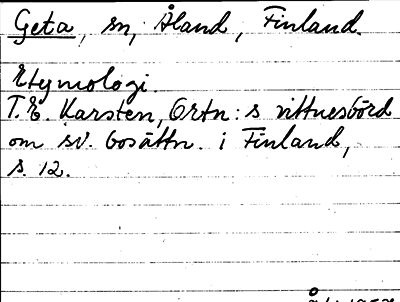 Geta, sn, Åland, Finland.
Etymologi.
T. E. Karsten, Ortn:s vittnesbörd
om sv. bosättn. i Finland,
s. 12.